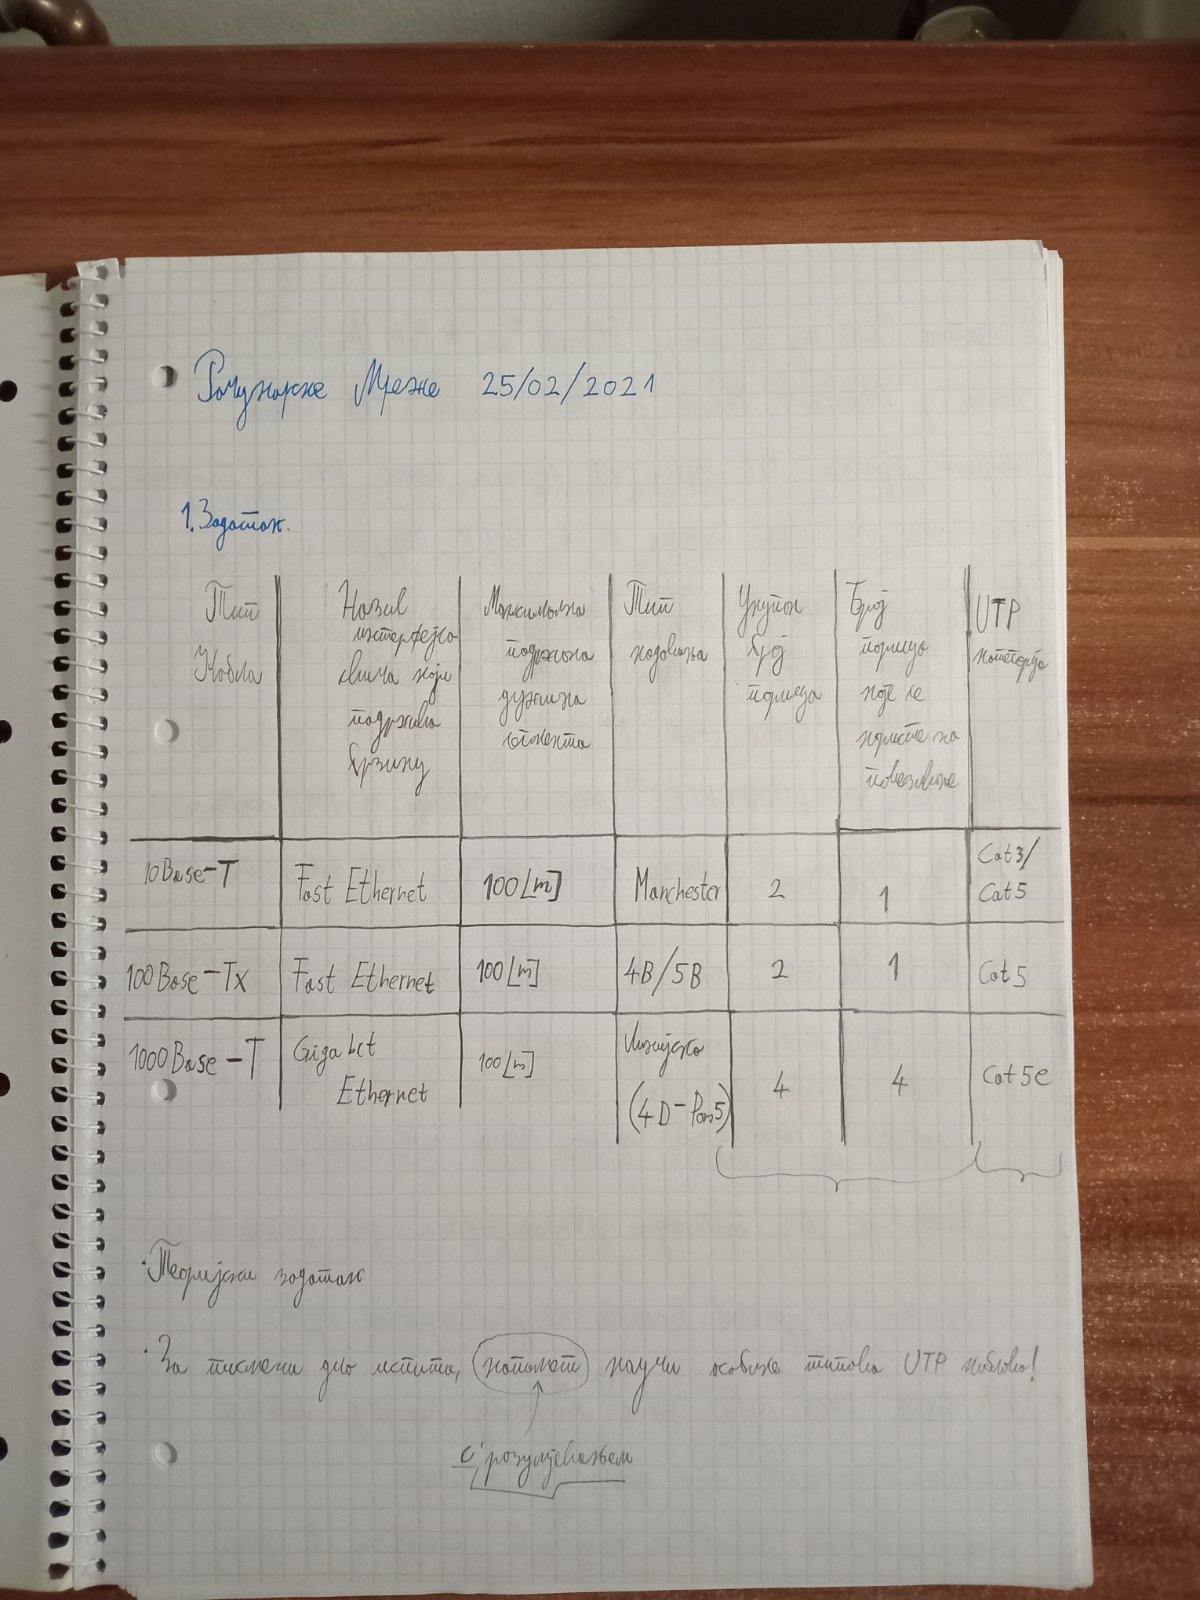 Рачунарске Мреже 25/02/2021
1. Задатак.
Тип Кабла | Назив интерфејса свича који подржава брзину | Максимална подржана дужина сегмента | Тип кодовања | Укупан број парица | Број парица које се користе за повезивање | UTP категорија
10Base-T | Fast Ethernet | 100[m] | Manchester | 2 | 1 | Cat3/ Cat5
100Base-Tx | Fast Ethernet | 100[m] | 4B/5B | 2 | 1 | Cat5
1000Base-T | Gigabit Ethernet | 100[m] | Линијско (4D-Pam5) | 4 | 4 | Cat5e
· Теоријски задатак
· За писмени део испита, напамет научи особине типова UTP каблова!
с' разумевањем